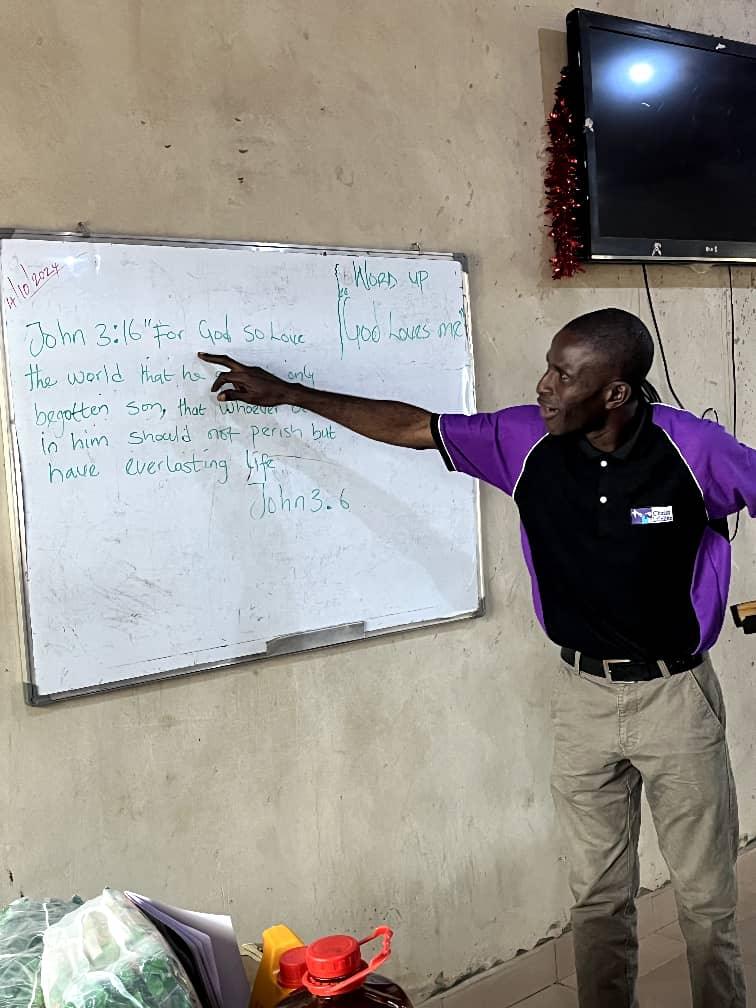 11/10/2024
WORD UP
"God Loves me"
John 3:16 "For God so Love
the world that he only
begotten son, that whoever
in him should not perish but
have everlasting life
John 3.6
LG